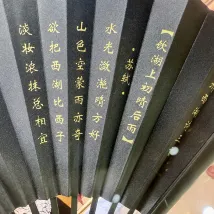 【饮湖上初晴后雨】
·苏轼·
水光潋滟晴方好
山色空蒙雨亦奇
欲把西湖比西子
淡妆浓抹总相宜